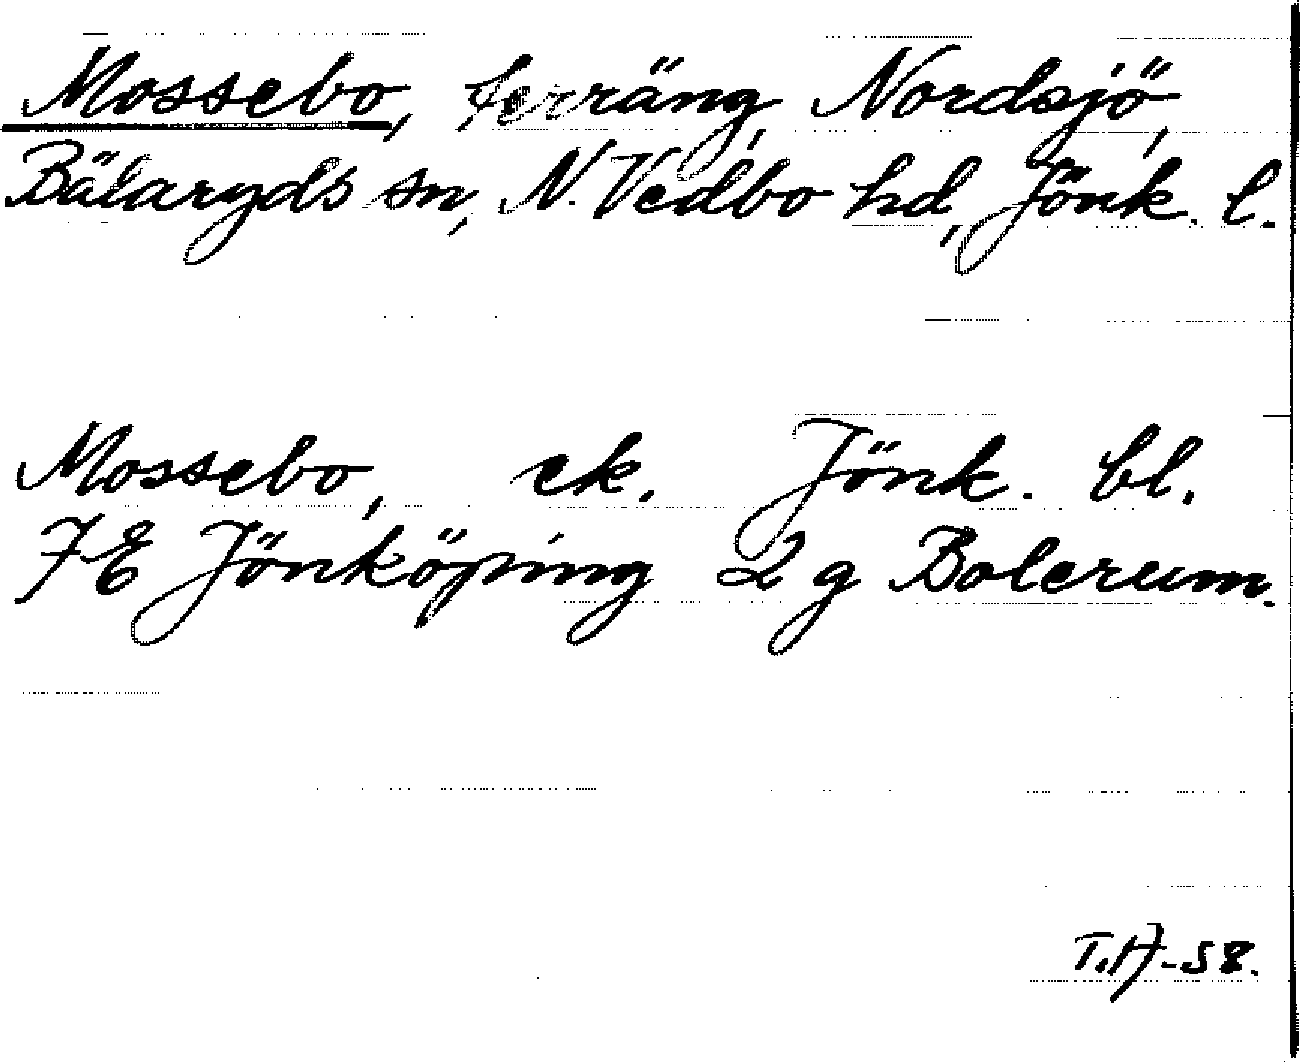 Mossebo, terräng, Nordsjö,
Bälaryds sn, N. Vedbo hd, Jönk. l.
Mossebo, ek. Jönk. bl.
7E Jönköping 2g Bolerum.
T.A-58.